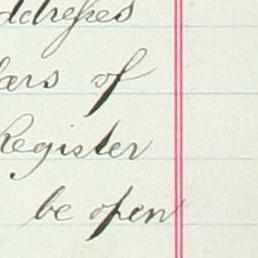 ddresses
ars of
Register
be open